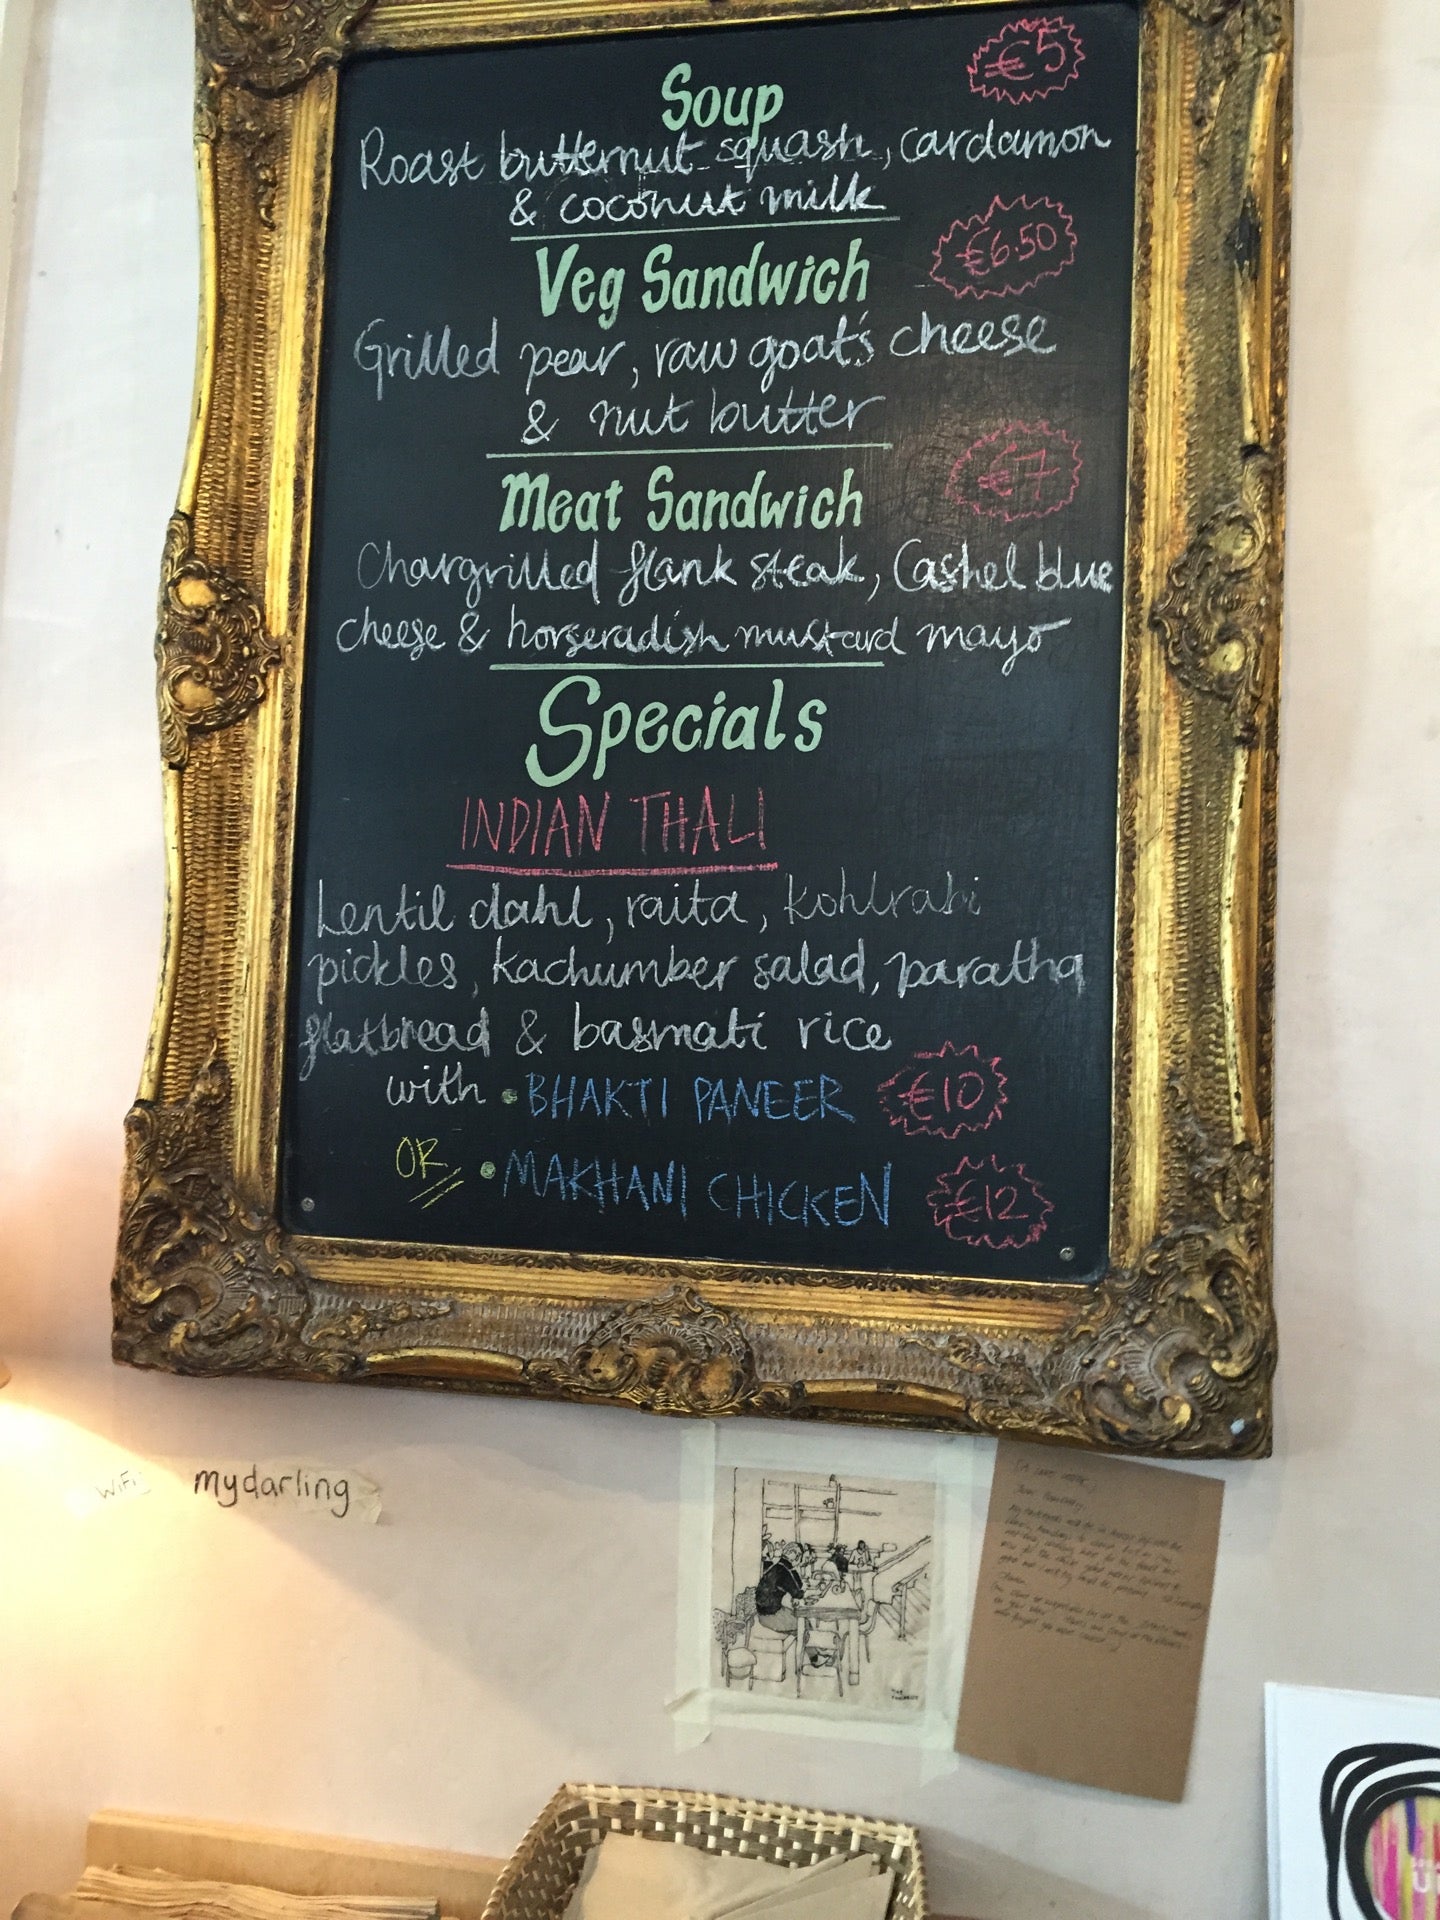 €5
Soup
Roast butternut squash, cardamon
& coconut milk
€6.50
Veg Sandwich
Grilled pear, raw goat's cheese
& nut butter
€7
Meat Sandwich
Chargrilled flank steak, Cashel blue
cheese & horseradish mustard mayo
Specials
INDIAN THALI
Lentil dahl, raita, kohlrabi
pickles, kachumber salad, paratha
flatbread & basmati rice
with • BHAKTI PANEER €10
OR • MAKHANI CHICKEN €12
WiFi: mydarling